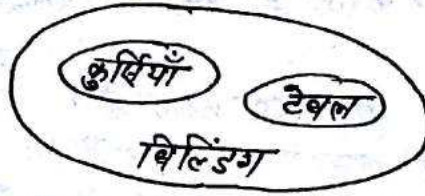 कुर्सियाँ
टेबल
बिल्डिंग